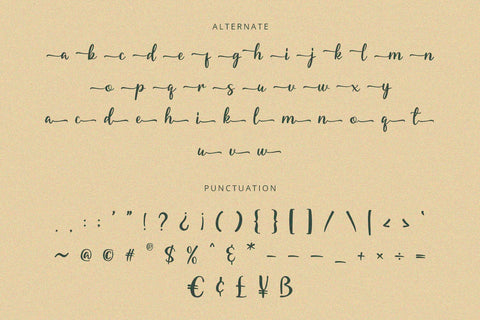 ALTERNATE
a b c d e f g h i j k l m n
o p q r s u v w x y
a c d e h i k l m n o q t
u v w
PUNCTUATION
. , : ; ' " ! ? ¿ ¡ ( ) { } [ ] / \ | < > ‘
~ @ © # ® $ % ^ & * - – — _ + × ÷ =
€ ¢ £ ¥ ß